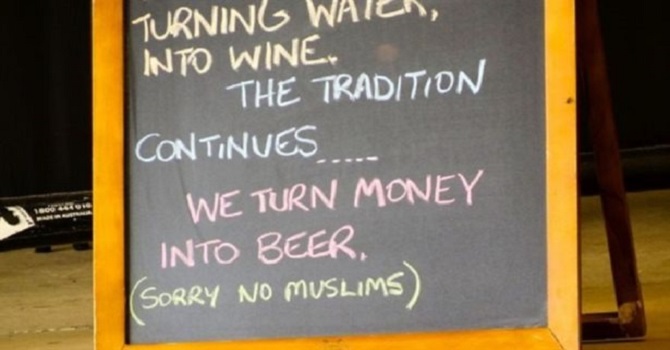 TURNING WATER,
INTO WINE.
THE TRADITION
CONTINUES.....
WE TURN MONEY
INTO BEER.
(SORRY NO MUSLIMS)
MADE IN AUSTRALIA